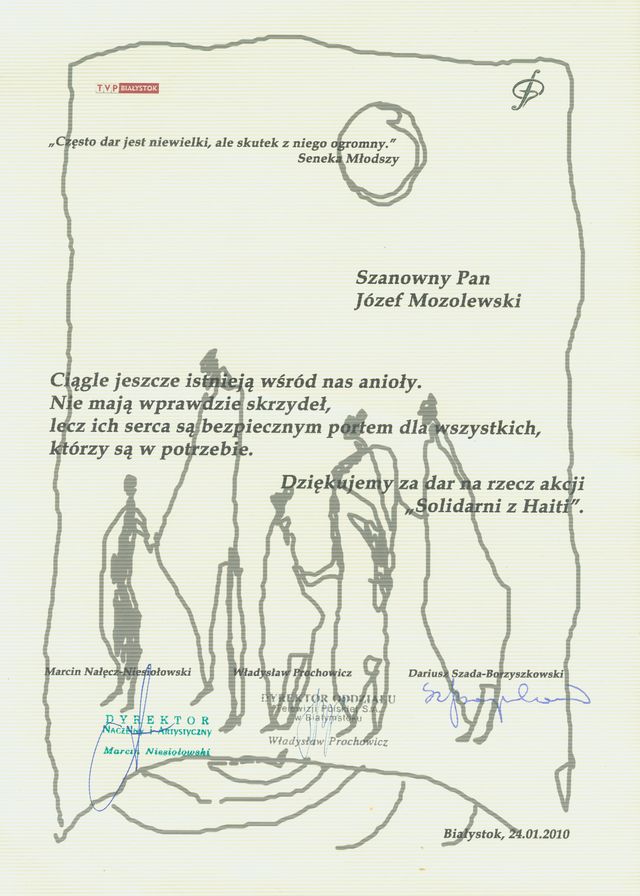 TVP BIAŁYSTOK
„Często dar jest niewielki, ale skutek z niego ogromny.”
Seneka Młodszy
Szanowny Pan
Józef Mozolewski
Ciągle jeszcze istnieją wśród nas anioły.
Nie mają wprawdzie skrzydeł,
lecz ich serca są bezpiecznym portem dla wszystkich,
którzy są w potrzebie.
Dziękujemy za dar na rzecz akcji
„Solidarni z Haiti”.
Marcin Nałęcz-Niesiołowski Władysław Prochowicz Dariusz Szada-Borzyszkowski
DYREKTOR
NACZELNY I ARTYSTYCZNY
Marcin Niesiołowski
DYREKTOR ODDZIAŁU
Telewizji Polskiej S.A.
w Białymstoku
Władysław Prochowicz
Białystok, 24.01.2010